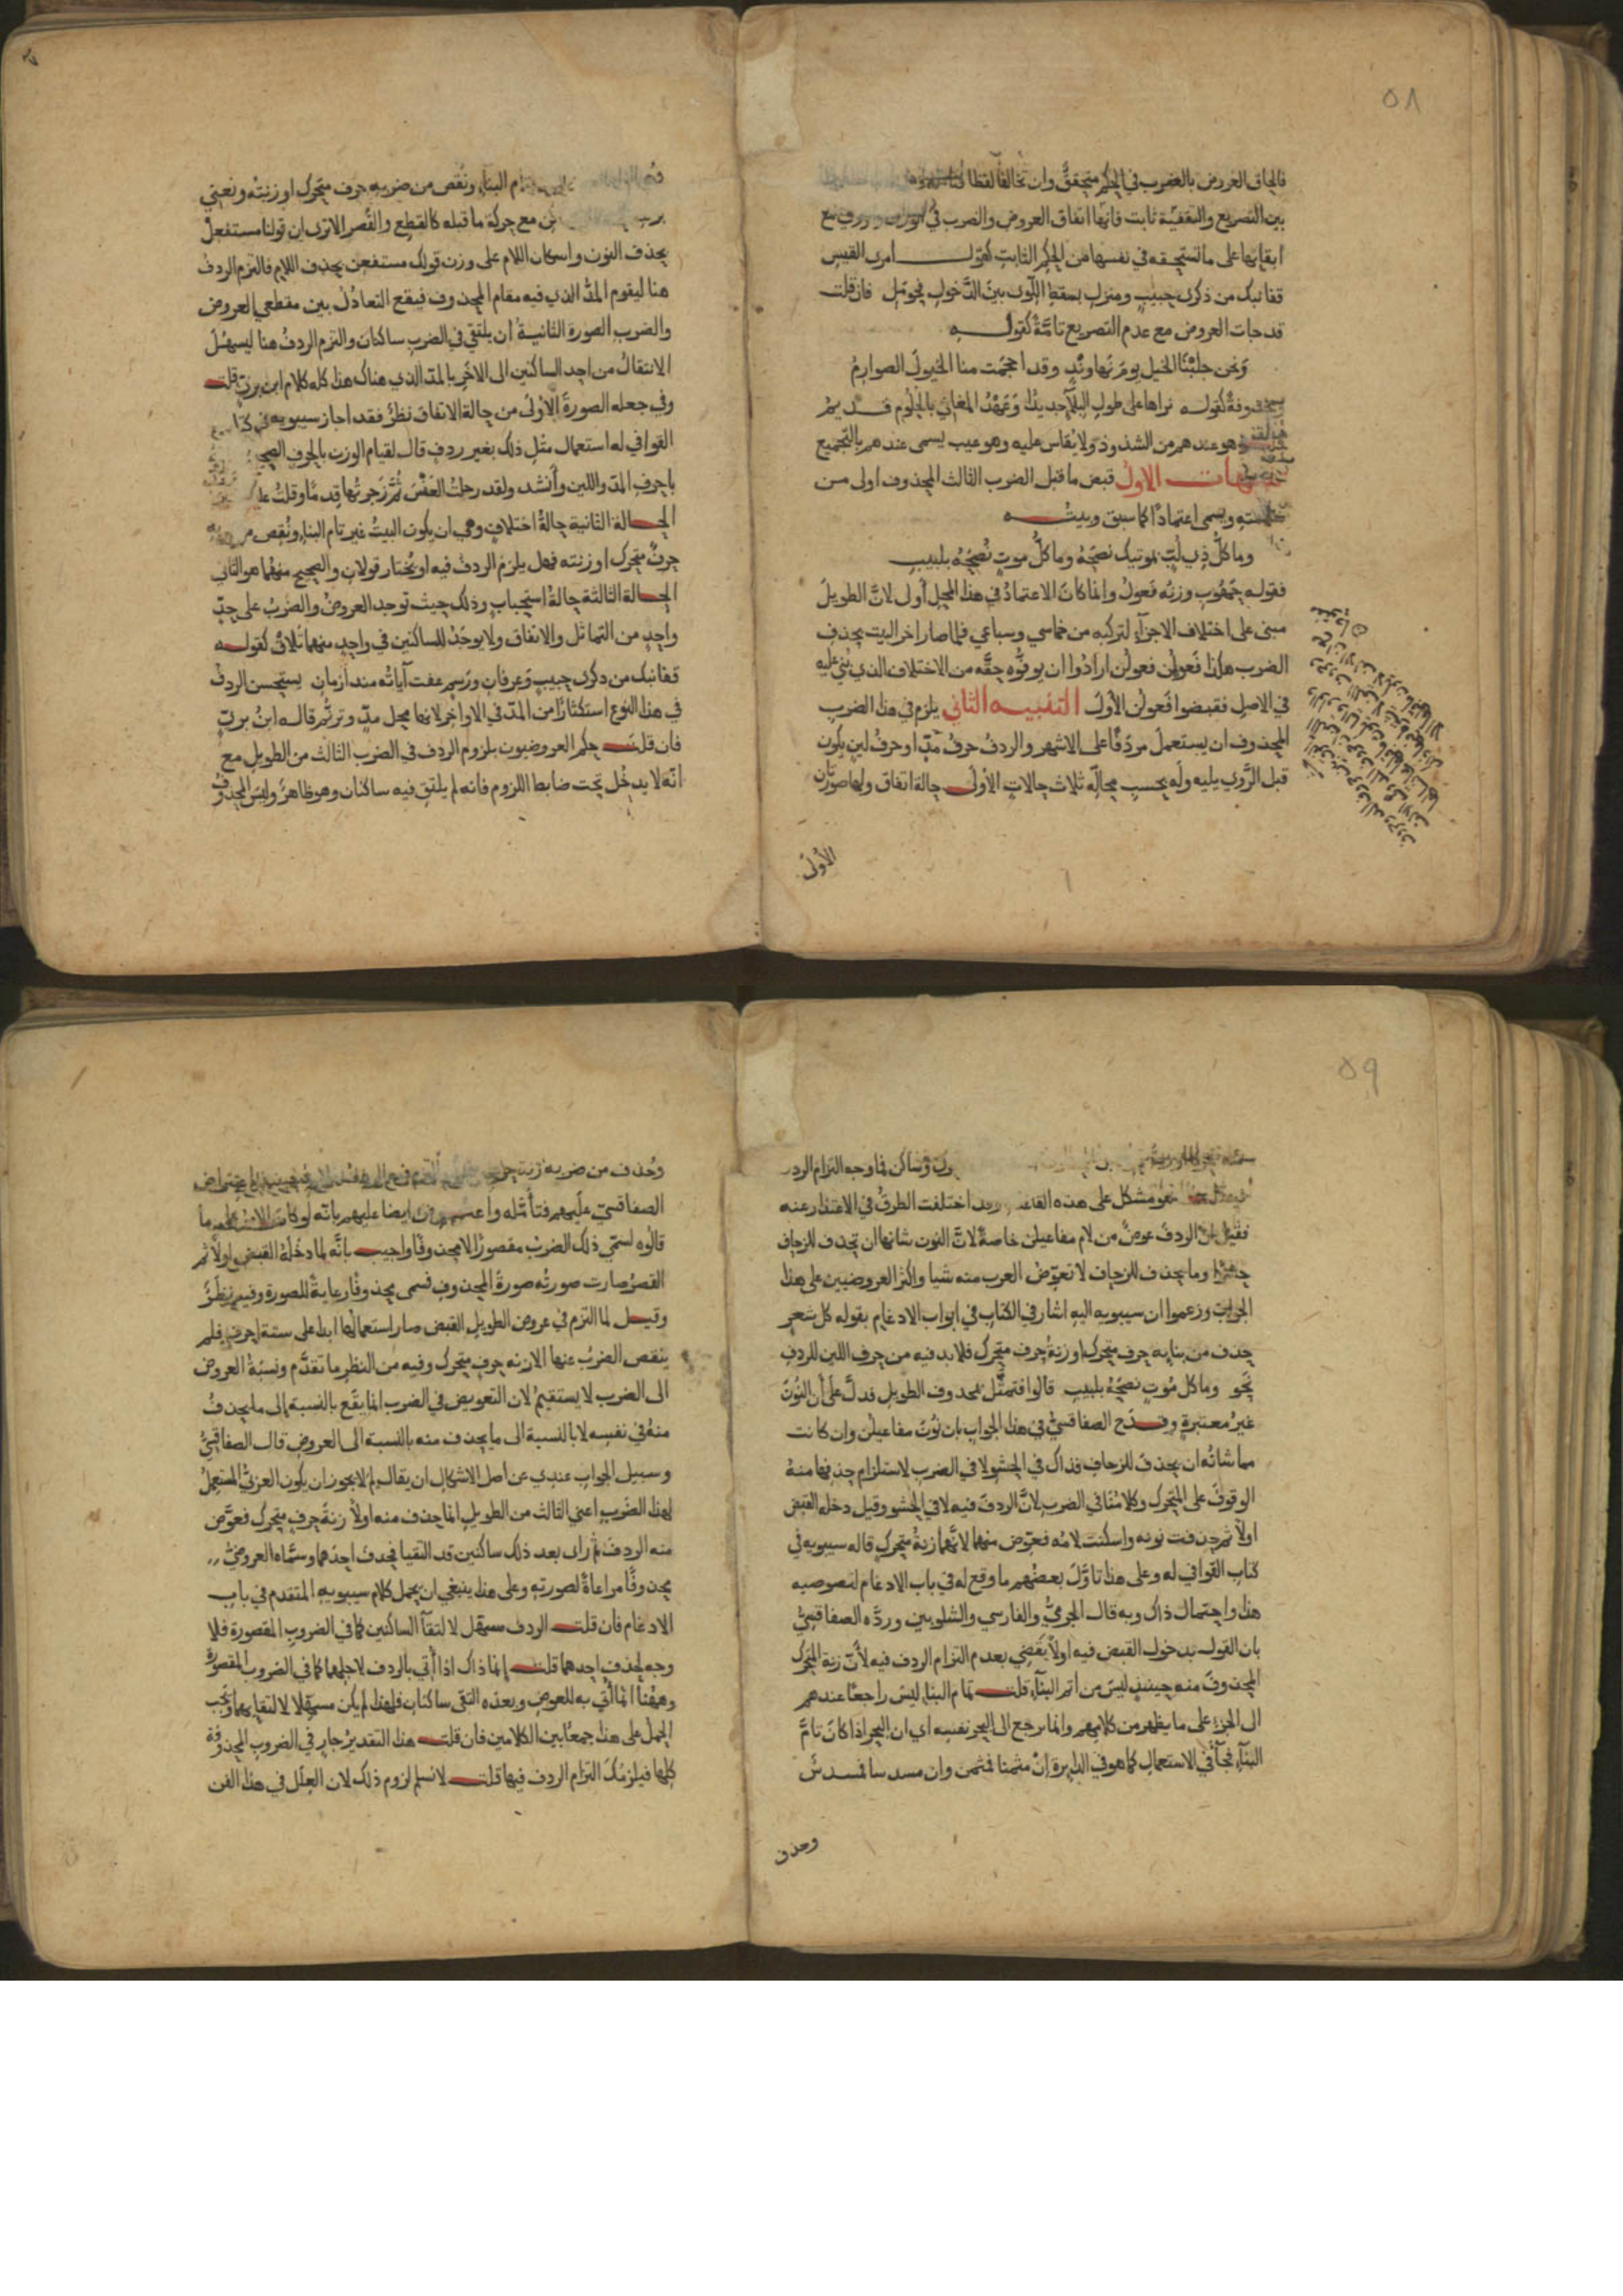 ٥٨
فالحاق العروض بالضرب في الحكم متحقق وان تخالفا لفظا
بين التصريع والتقفية ثابت فانها اتفاق العروض والضرب في الوزن والروي مع
ابقائها على ما تستحقه في نفسها من الحكم الثابت كقول امرى القيس
قفا نبك من ذكرى حبيب ومنزل بسقط اللوى بين الدخول فحومل فان قلت
قد جات العروض مع عدم التصريع تامة كقوله
ونحن جلبنا الخيل يوم نهاوند وقد احجمت منا الخيول الصوارم
ومحذوفة كقوله نراها على طول البلآ جديدا وعهد المغاني بالحلوم قديم
قلت هو عندهم من الشذوذ ولا يقاس عليه وهو عيب يسمى عندهم بالتجميع
تنبيهات الاول قبض ما قبل الضرب الثالث المحذوف اولى من
سلامته ويسمى اعتمادا كما سبق وبيته
وما كل ذي لب بموتيك نصحه وما كل موت نصحه بلبيب
فقوله حهو بب وزنه فعول وانما كان الاعتماد في هذا المحل أولى لان الطويل
مبنى على اختلاف الاجزآء لتركبه من خماسي وسباعي فلما صار اخر البيت بحذف
الضرب هكذا فعولن فعولن ارادوا ان يوفوه حقه من الاختلاف الذي بني عليه
في الاصل فقبضوا فعولن الأول التنبيه الثاني يلزم في هذا الضرب
المحذوف ان يستعمل مردفا على الاشهر والردف حرف مد او حرف لين يكون
قبل الروي يليه وله بحسب محاله ثلاث حالات الأولى حالة اتفاق ولها صورتان
الأولى
تام البناء ونقص من ضربه حرف متحرك او زنته ونعني
مع حركة ما قبله كالقطع والقصر الا ترى ان قولنا مستفعل
بحذف النون واسكان اللام على وزن قولك مستفعن بحذف اللام فالتزم الردف
هنا ليقوم المد الذي فيه مقام المحذوف فيقع التعادل بين مقطعي العروض
والضرب الصورة الثانية أن يلتقي في الضرب ساكنان والتزم الردف هنا ليسهل
الانتقال من احد الساكنين الى الاخر بالمد الذي هناك هذا كله كلام ابن بري قلت
وفي جعله الصورة الأولى من حالة الاتفاق نظر فقد اجاز سيبويه في كتاب
القوافي له استعمال مثل ذلك بغير ردف قال لقيام الوزن بالحرف الصحيح
باحرف المد واللين وأنشد ولقد رحلت العنس ثم زجرتها قدما وقلت
الحالة الثانية حالة اختلاف وهي ان يكون البيت غير تام البناء ونقص من ضربه
حرف متحرك او زنته فهل يلزم الردف فيه او يختار قولان والصحيح منهما هو الثاني
الحالة الثالثة حالة استحباب وذلك حيث توجد العروض والضرب على حد
واحد من التماثل والاتفاق ولا يوجد للساكنين في واحد منهما تلاق كقوله
قفا نبك من ذكرى حبيب وعرفان ورسم عفت آياته منذ ازمان يستحسن الردف
في هذا النوع استكثارا من المد في الاواخر لانها محل مد وترنم قاله ابن بري
فان قلت حكم العروضيون بلزوم الردف في الضرب الثالث من الطويل مع
انه لا يدخل تحت ضابط اللزوم فانه لم يلتق فيه ساكنان وهو ظاهر وليس المحذوف
٥٩
وساكن فما وجه التزام الردف
هو مشكل على هذه القاعدة وقد اختلفت الطرق في الاعتذار عنه
فقيل ان الردف عوض من لام مفاعيلن خاصة لان النون شانها ان تحذف للزحاف
وما يحذف للزحاف لا تعوض العرب منه شيا واكثر العروضيين على هذا
الجواب وزعموا ان سيبويه اليه اشار في الكتاب في ابواب الادغام بقوله كل شعر
حذف من بنايه حرف متحرك او زنة حرف متحرك فلا بد فيه من حرف اللين للردف
نحو وما كل موت نصحه بلبيب قالوا فتمثل بمحذوف الطويل فدل على أن النون
غير معتبرة وقدح الصفاقسي في هذا الجواب بان نون مفاعيلن وان كانت
مما شانه ان يحذف للزحاف فذاك في الحشو لا في الضرب لاستلزام حذفها منه
الوقوف على المتحرك وكلامنا في الضرب لان الردف فيه لا في الحشو وقيل دخله القبض
اولا ثم حذفت نونه واسكنت لامه فعوض منهما لانهما زنة متحرك قاله سيبويه في
كتاب القوافي له وعلى هذا تاول بعضهم ما وقع له في باب الادغام لنصوصيه
هذا واحتمال ذاك وبه قال الجرمي والفارسي والشلوبين ورده الصفاقسي
بان القول بدخول القبض فيه اولا يقضي بعدم التزام الردف فيه لأن زنة المتحرك
المحذوف منه حينيذ ليس من اتم البنآء قلت تمام البناء ليس راجعا عندهم
الى الجزء على ما يظهر من كلامهم وانما يرجع الى البحر نفسه اي ان البحر اذا كان تام
البنآء فجآ في الاستعمال كما هو في الدايرة ان مثمنا فمثمن وان مسدسا فمسدس
وحذف
وحذف من ضربه زنة
الصفاقسي عليهم فتأمله واعترض ايضا عليهم بانه لو كان الامر على ما
قالوه لسمي ذلك الضرب مقصورا لا محذوفا واجيب بانه لما دخله القبض اولا ثم
القصر صارت صورته صورة المحذوف فسمى محذوفا رعاية للصورة وفيه نظر
وقيل لما التزم في عروض الطويل القبض صار استعمالها ابدا على ستة احرف فلم
ينقص الضرب عنها الا زنه حرف متحرك وفيه من النظر ما تقدم ونسبة العروض
الى الضرب لا يستقيم لان التعويض في الضرب انما يقع بالنسبة الى ما يحذف
منه في نفسه لا بالنسبة الى ما يحذف منه بالنسبة الى العروض قال الصفاقسي
وسبيل الجواب عندي عن اصل الاشكال ان يقال لم لا يجوز ان يكون العربي المستعمل
لهذا الضرب اعني الثالث من الطويل انما حذف منه اولا زنة حرف متحرك فعوض
منه الردف ثم راى بعد ذلك ساكنين قد التقيا فحذف احدهما وسماه العروضي
محذوفا مراعاة لصورته وعلى هذا ينبغي ان يحمل كلام سيبويه المتقدم في باب
الادغام فان قلت الردف مسهل لالتقآ الساكنين كما في الضروب المقصورة فلا
وجه لحذف احدهما قلت إنما ذاك اذا أتي بالردف لاجلهما كما في الضروب المقصورة
وههنا انما أتي به للعوض وبعده التقى ساكنان فلهذا لم يكن مسهلا لالتقايهما ويجب
الحمل على هذا جمعا بين الكلامين فان قلت هذا التقدير جار في الضروب المحذوفة
كلها فيلزمك التزام الردف فيها قلت لا نسلم لزوم ذلك لان العلل في هذا الفن